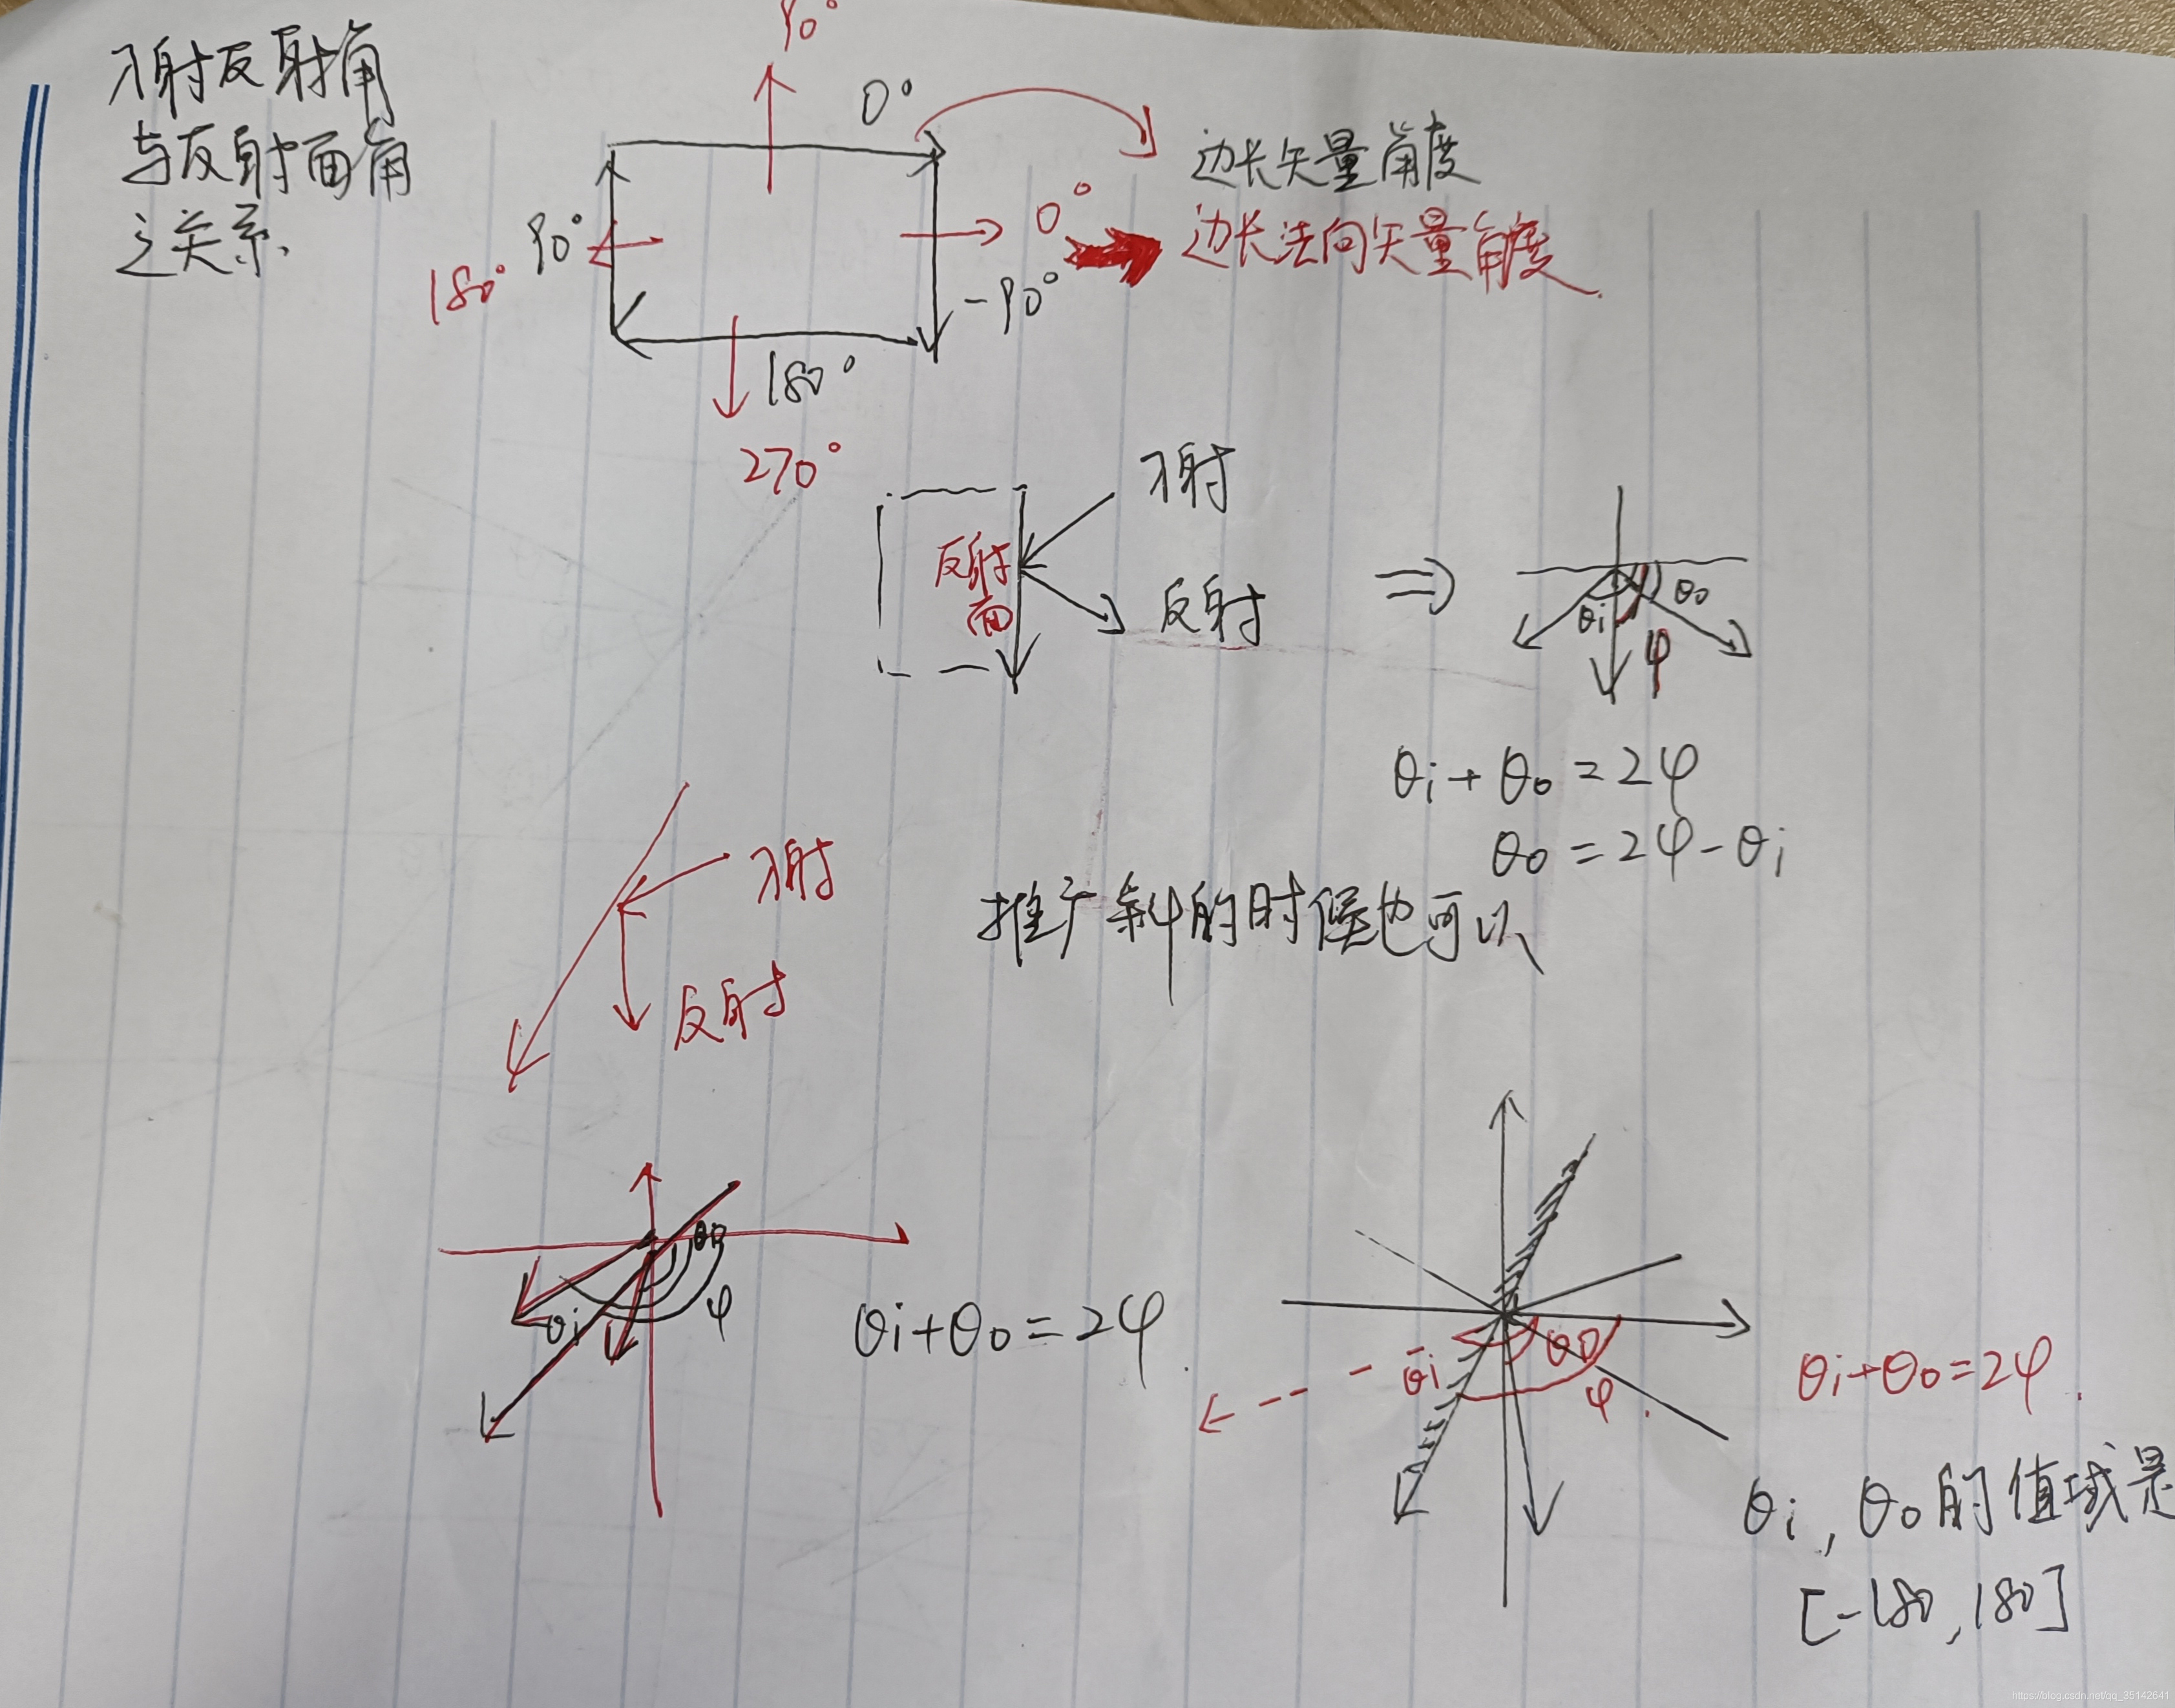 入射反射角
与反射面角
之关系.
90°
0°
边长矢量角度
90°
0°
边长法向矢量角度.
180°
-90°
180°
270°
入射
反射面
反射
⇒
θi
θo
φ
θi + θo = 2φ
θo = 2φ - θi
入射
反射
推广斜的时候也可以
θo
θi
φ
θi+θo=2φ.
θi
θo
φ
θi+θo=2φ.
θi, θo的值域是
[-180,180]
https://blog.csdn.net/qq_35142641